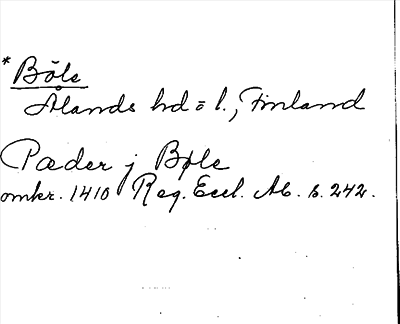 *Böle
Ålands hd o l., Finland
Pæder j Bøle
omkr. 1410 Reg. Eccl. Ab. s. 242.